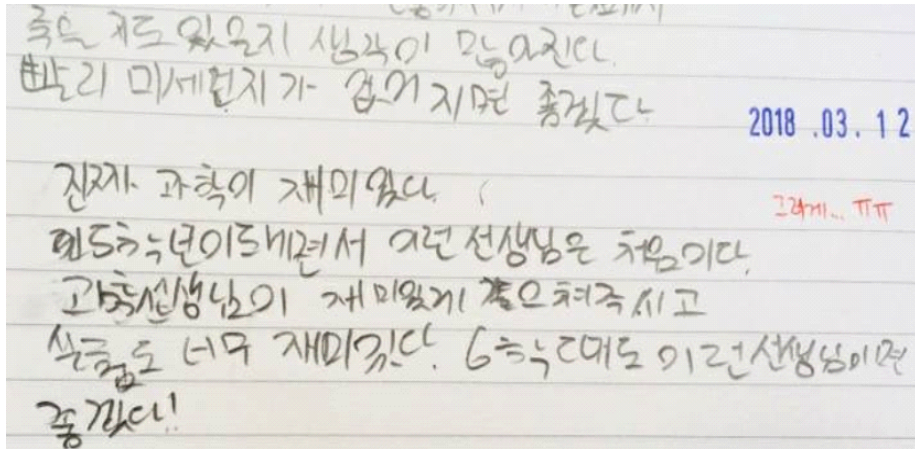 죽은 지도 있을지 생각이 많아진다.
빨리 미세먼지가 없어 지면 좋겠다
2018 .03. 12
진짜 과학이 재미있다.
그러게... ㅠㅠ
5학년이 되면서 이런 선생님은 처음이다.
과학선생님이 재미있게 가르쳐주시고
실험도 너무 재미있다. 6학년 때도 이런 선생님이면
좋겠다!